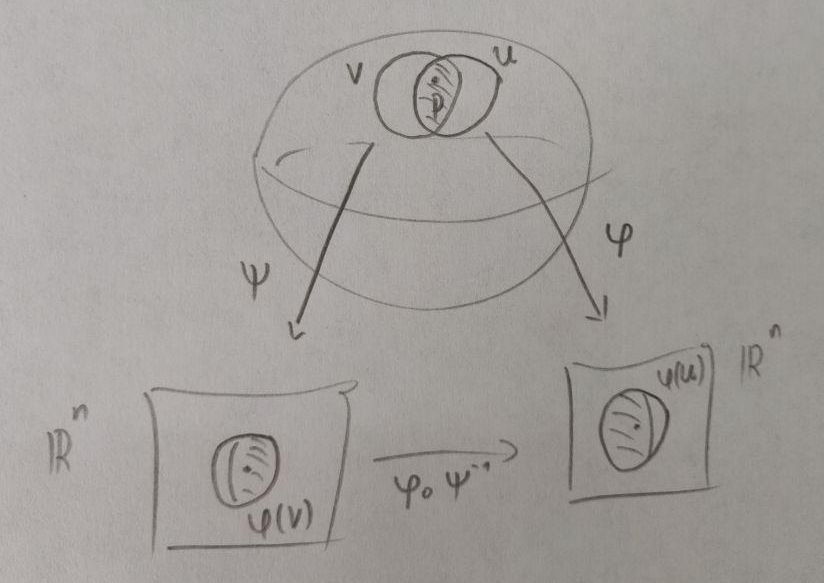 V
U
p
ψ
φ
ℝⁿ
φ(V)
φ∘ψ⁻¹
φ(U)
ℝⁿ